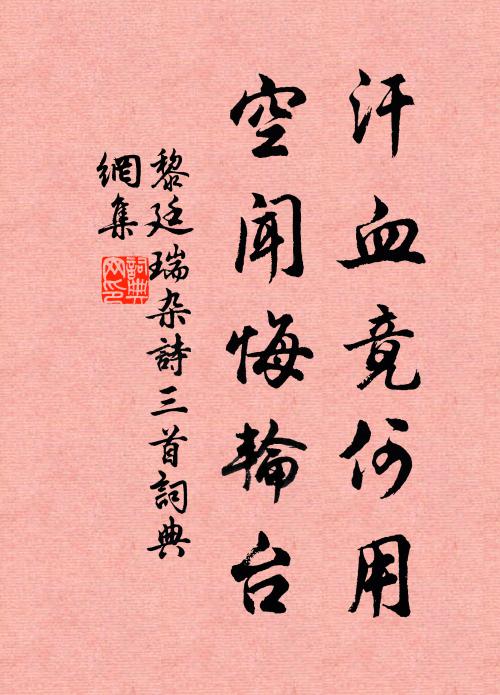 汗血竟何用
空聞悔輪台
黎廷瑞杂詩三首詞典
網集
詞典網印